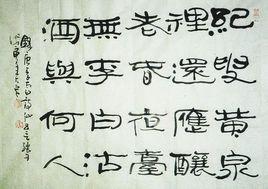 紀叟黄泉
裡還應釀
老春夜臺
無李白沽
酒與何人